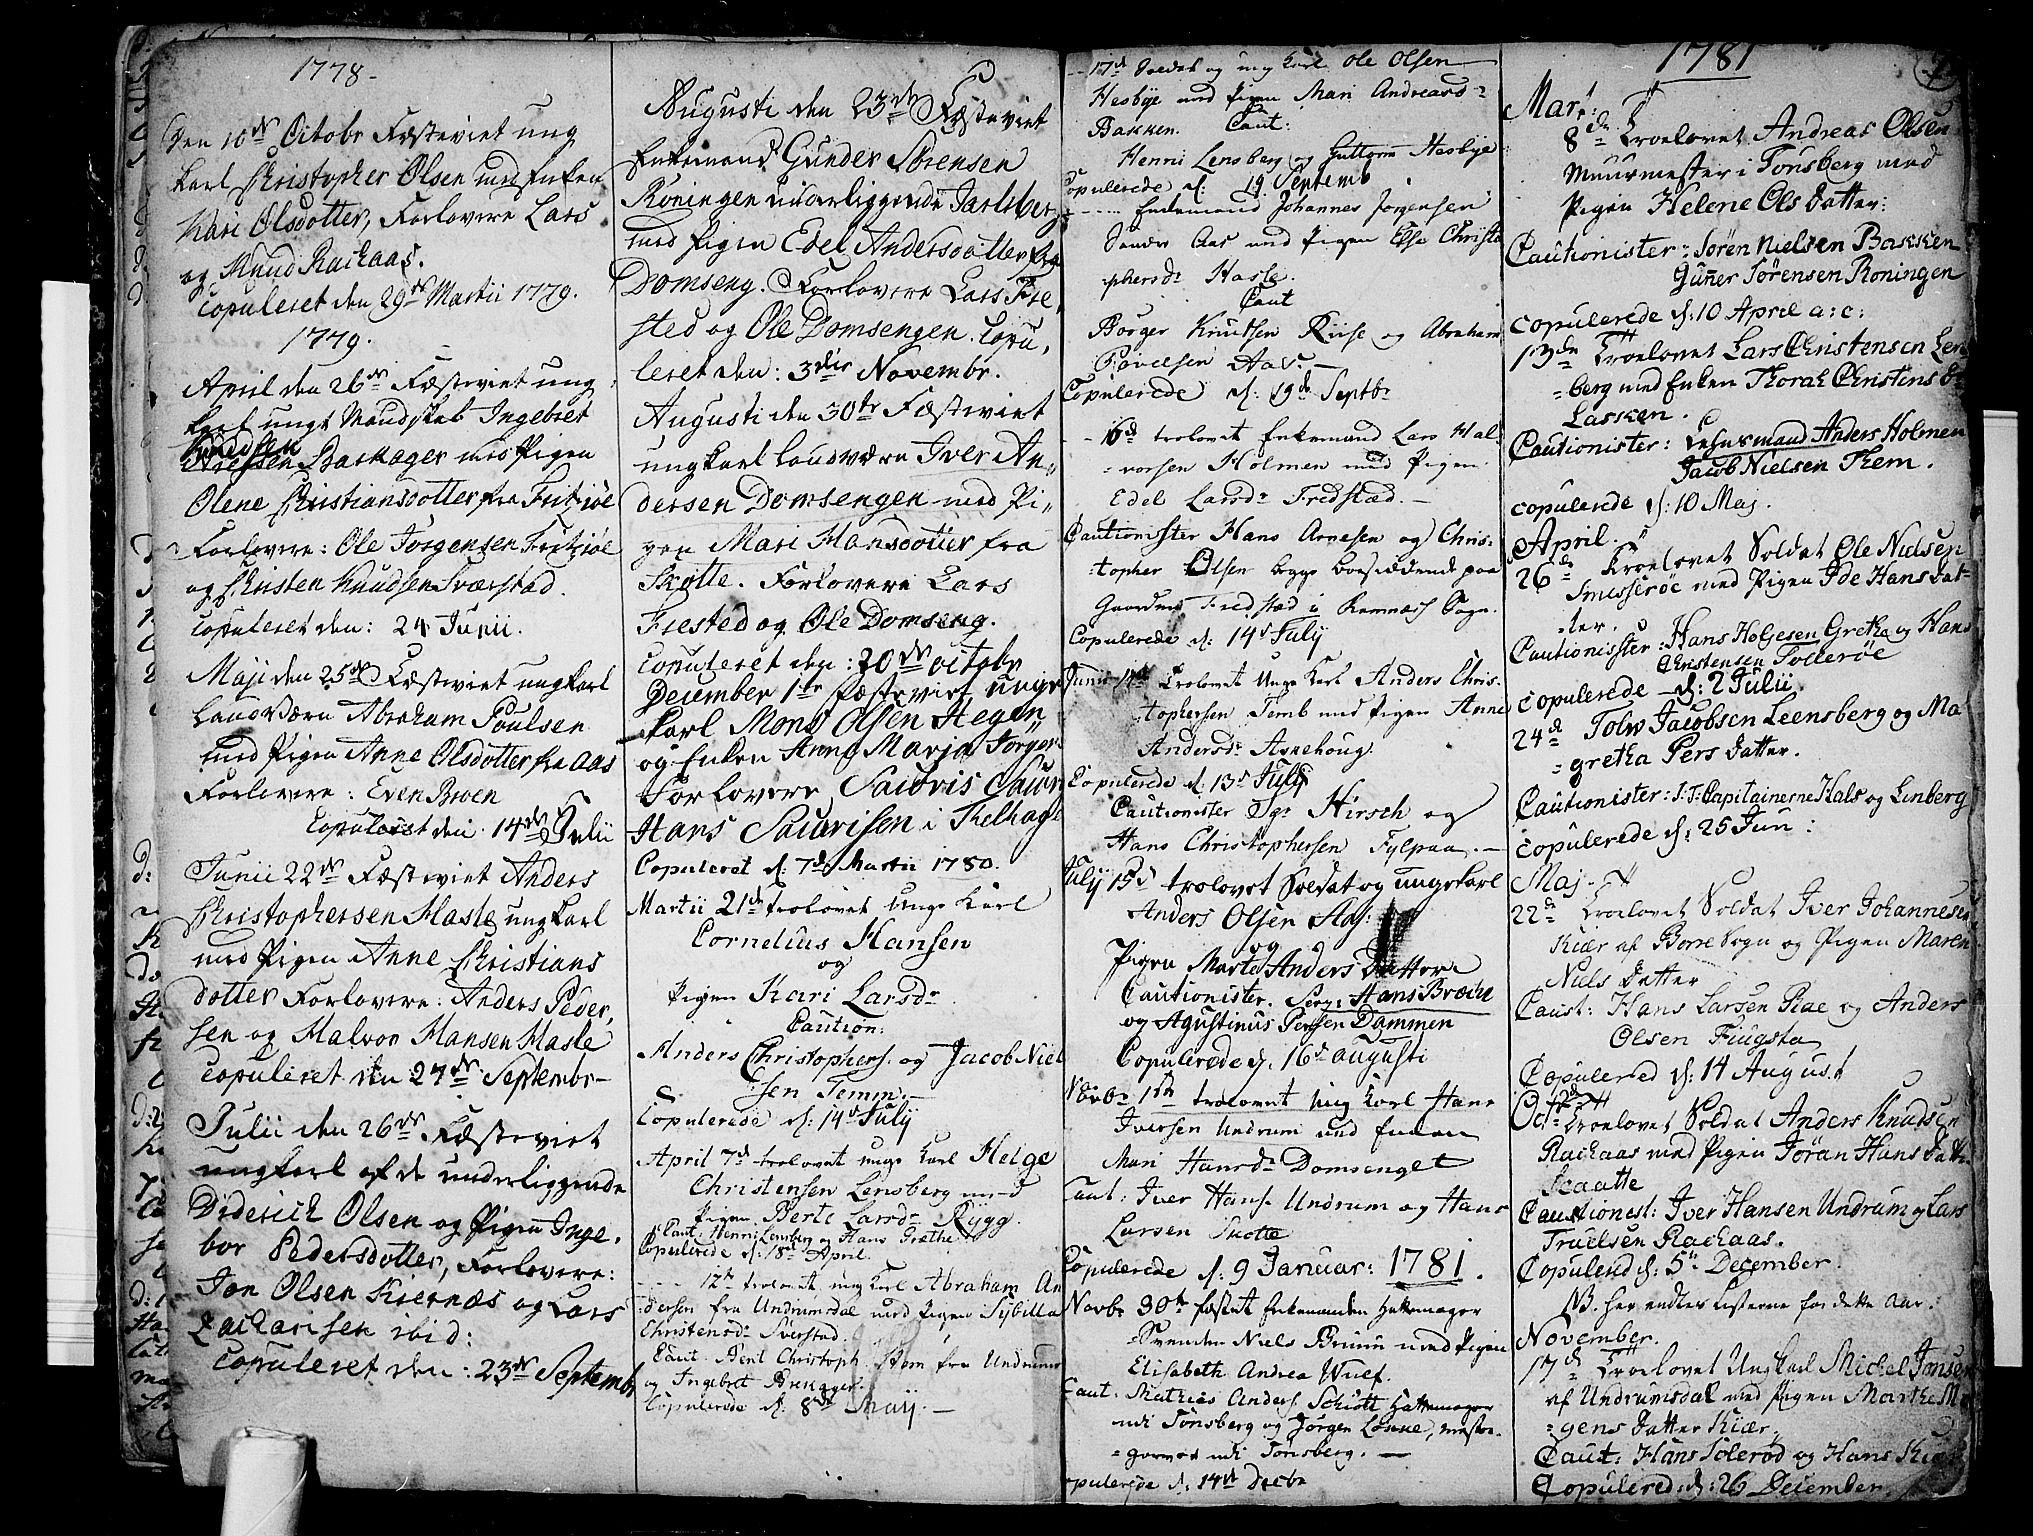 1778.
Den 10de Octobr Fæsteviet ung
karl Christopher Olsen med Enken
Kari Olsdotter, Forlovere Lars
og Knud Rachaas.
Copuleret den 29de Martii 1779.
1779.
April den 26de Fæsteviet ung
karl ungt Mandskab Ingebret
Knudsen
Baskager med Pigen
Olene Christiansdotter fra Fritzøe
Forlovere: Ole Jørgensen Fritzøe
og Christen Knudsen Sværstad.
Copuleret den: 24 Junii.
Maji den 25de Fæsteviet ungkarl
Landværn Abraham Poulsen
med Pigen Anne Olsdotter fra Aas
Forlovere: Even Broen
Copuleret den. 14de Julii
Junii 22de Fæsteviet Anders
Christophersen Hasle ungkarl
med Pigen Anne Christians
dotter Forlovere: Anders Peder,
sen og Halvor Hansen Hasle
Copuleret den 27de Septembr
Julii den 26de Fæsteviet
ungkarl af de underliggende
Diderich Olsen og Pigen Inge,
bor Pedersdotter, Forlovere:
Jon Olsen Kiernæs og Lars
Zachariasen ibid:
Copuleret den: 23de Septembr
Augusti den 23de Fæsteviet
Enkemand Gunder Sørensen
Roningen underliggende Jarlsberg
med Pigen Edel Andersdotter fra
Domseng. Forlovere Lars Fre,
sted og Ole Domsengen. Copu,
leret den: 3die Novembr.
Augusti den 30te Fæsteviet
ungkarl Landværn Iver An,
dersen Domsengen med Pi,
gen Mari Hansdotter fra
Skotte. Forlovere Lars
Frested og Ole Domseng.
Copuleret den: 20de Octobr
December 1te Fæsteviet unge
karl Mons Olsen Hegen
og Enken Anne Maria Jørgen
Forlovere Sauvris Sauvr
Hans Saurisen i Kelhag
Copuleret d: 7d Martii 1780.
Martii 21d trolovet Unge Karl
Cornelius Hansen
og
Pigen Kari Larsdr
Caution:
Anders Christophers. og Jacob Niel
sen Temm.
Copulerede d: 14d July
April 7d trolovet unge Karl Helge
Christensen Lensberg med
Pigen Berte Larsdr Rygg.
Caut: Henri Lensberg og Hans Træthe
Copulerede d: 18d April.
12te trolovet ung Karl Abraham An
dersen fra Undrumsdal med Pigen Sybilla
Christensdr Sverstad.
Caut. Bent Christoph. Skom fra Undrum
og Ingebret Brekager.
Copulerede d: 8de Maij.
17d Soldat og ung Karl Ole Olsen
Hesbye med Pigen Mari Andreasd
Bakken. Caut:
Henri Lensberg og Guttorm Hesbye
Copulerede d: 19 Septemb
Enkemand Johannes Jørgensen
Sønder Aas med Pigen Else Christo
phersdr Hasle.
Caut
Børger Knutsen Riise og Abraham
Povelsen Aas.
Copulerede d: 19de Septbr
trolovet Enkemand Lars Hal
vorsen Holmen med Pigen
Edel Larsdr Fredstad.
Cautionister Hans Arvesen og Chris
topher Olsen begge boesiddende paa
Gaarden Fredstad i Ramnæss Sogn.
Copulerede d: 14d July
Junii trolovet Unge Karl Anders Chris
tophersen Temb med Pigen Anne
Andersdr Asnehoug.
Copulerede d: 13d July
Cautionister Sgr Hirsch og
Hans Christophersen Fylpaa.
July 15d trolovet Soldat og ungekarl
Anders Olsen Aas:
og
Pigen Marte Anders Datter
Cautionister. Serg: Hans Broch
og Agustinus Persen Dammen
Copulerede d. 16d augusti
Novbr 1te trolovet Ung Karl Hans
Iversen Undrum med Enken
Mari Hansdr Domsenget
Caut: Iver Hans. Undrum og Hans
Larsen Skotte
Copulerede d: 9 Januar: 1781.
Novbr 30te fæstet Enkemanden Hattemager
Svenden Niels Bruun med Pigen
Elisabeth Andrea Wulf.
Caut: Mathias Anders. Schiøtt Hattemager
udi Tønsberg og Jørgen
udi Tonsberg.
Copulerede d: 14de Decbr
1781
Mart:
8de Troelovet Andreas Olsen
Muurmester i Tonsberg med
Pigen Helene Ols Datter:
Cautionister: Søren Nielsen Bakken
Guner Sørensen Roningen
Copulerede d: 10 April a: c:
13de Troelovet Lars Christensen Len
berg med Enken Thorah Christens D
Lasken.
Cautionister: Lehnsmand Anders Holmen
Jacob Nielsen Them.
copulerede d: 10 Maj.
April.
26de Troelovet Soldat Ole Nielsen
Smisserøe med Pigen Ide Hans Dat
ter.
Cautionister: Hans Holgesen Gretka og Hans
Christensen Sollerøe
copulerede d: 2 Julii
24de Tolv Jacobsen Leensberg og Ma
gretha Pers Datter.
Cautionister: S: T: Capitainerne Hals og Linberg
Copulerede d: 25 Jun:
Maj
22de Troelovet Soldat Iver Johannesen
Kiær af Borre Sogn og Pigen Maren
Niels Datter
Caust: Hans Larsen Rae og Anders
Olsen Fiugsta
Copulered d: 14 August
Oct: Troelovet Soldat Anders Knudsen
Rachaas med Pigen Jøran Hans Datt.
Skaatte
Cautionest: Iver Hansen Undrum og Lars
Truelsen Rachaas.
Copulered d: 5te December.
NB. her endtes Listerne for dette Aar.
November.
17de Troelovet Ungkarl Michel Jonsen
af Undrumsdal med Pigen Marthe Mo
gens Datter Kiær.
Caut: Hans Solerød og Hans Kiær
Copulered d: 26 December.